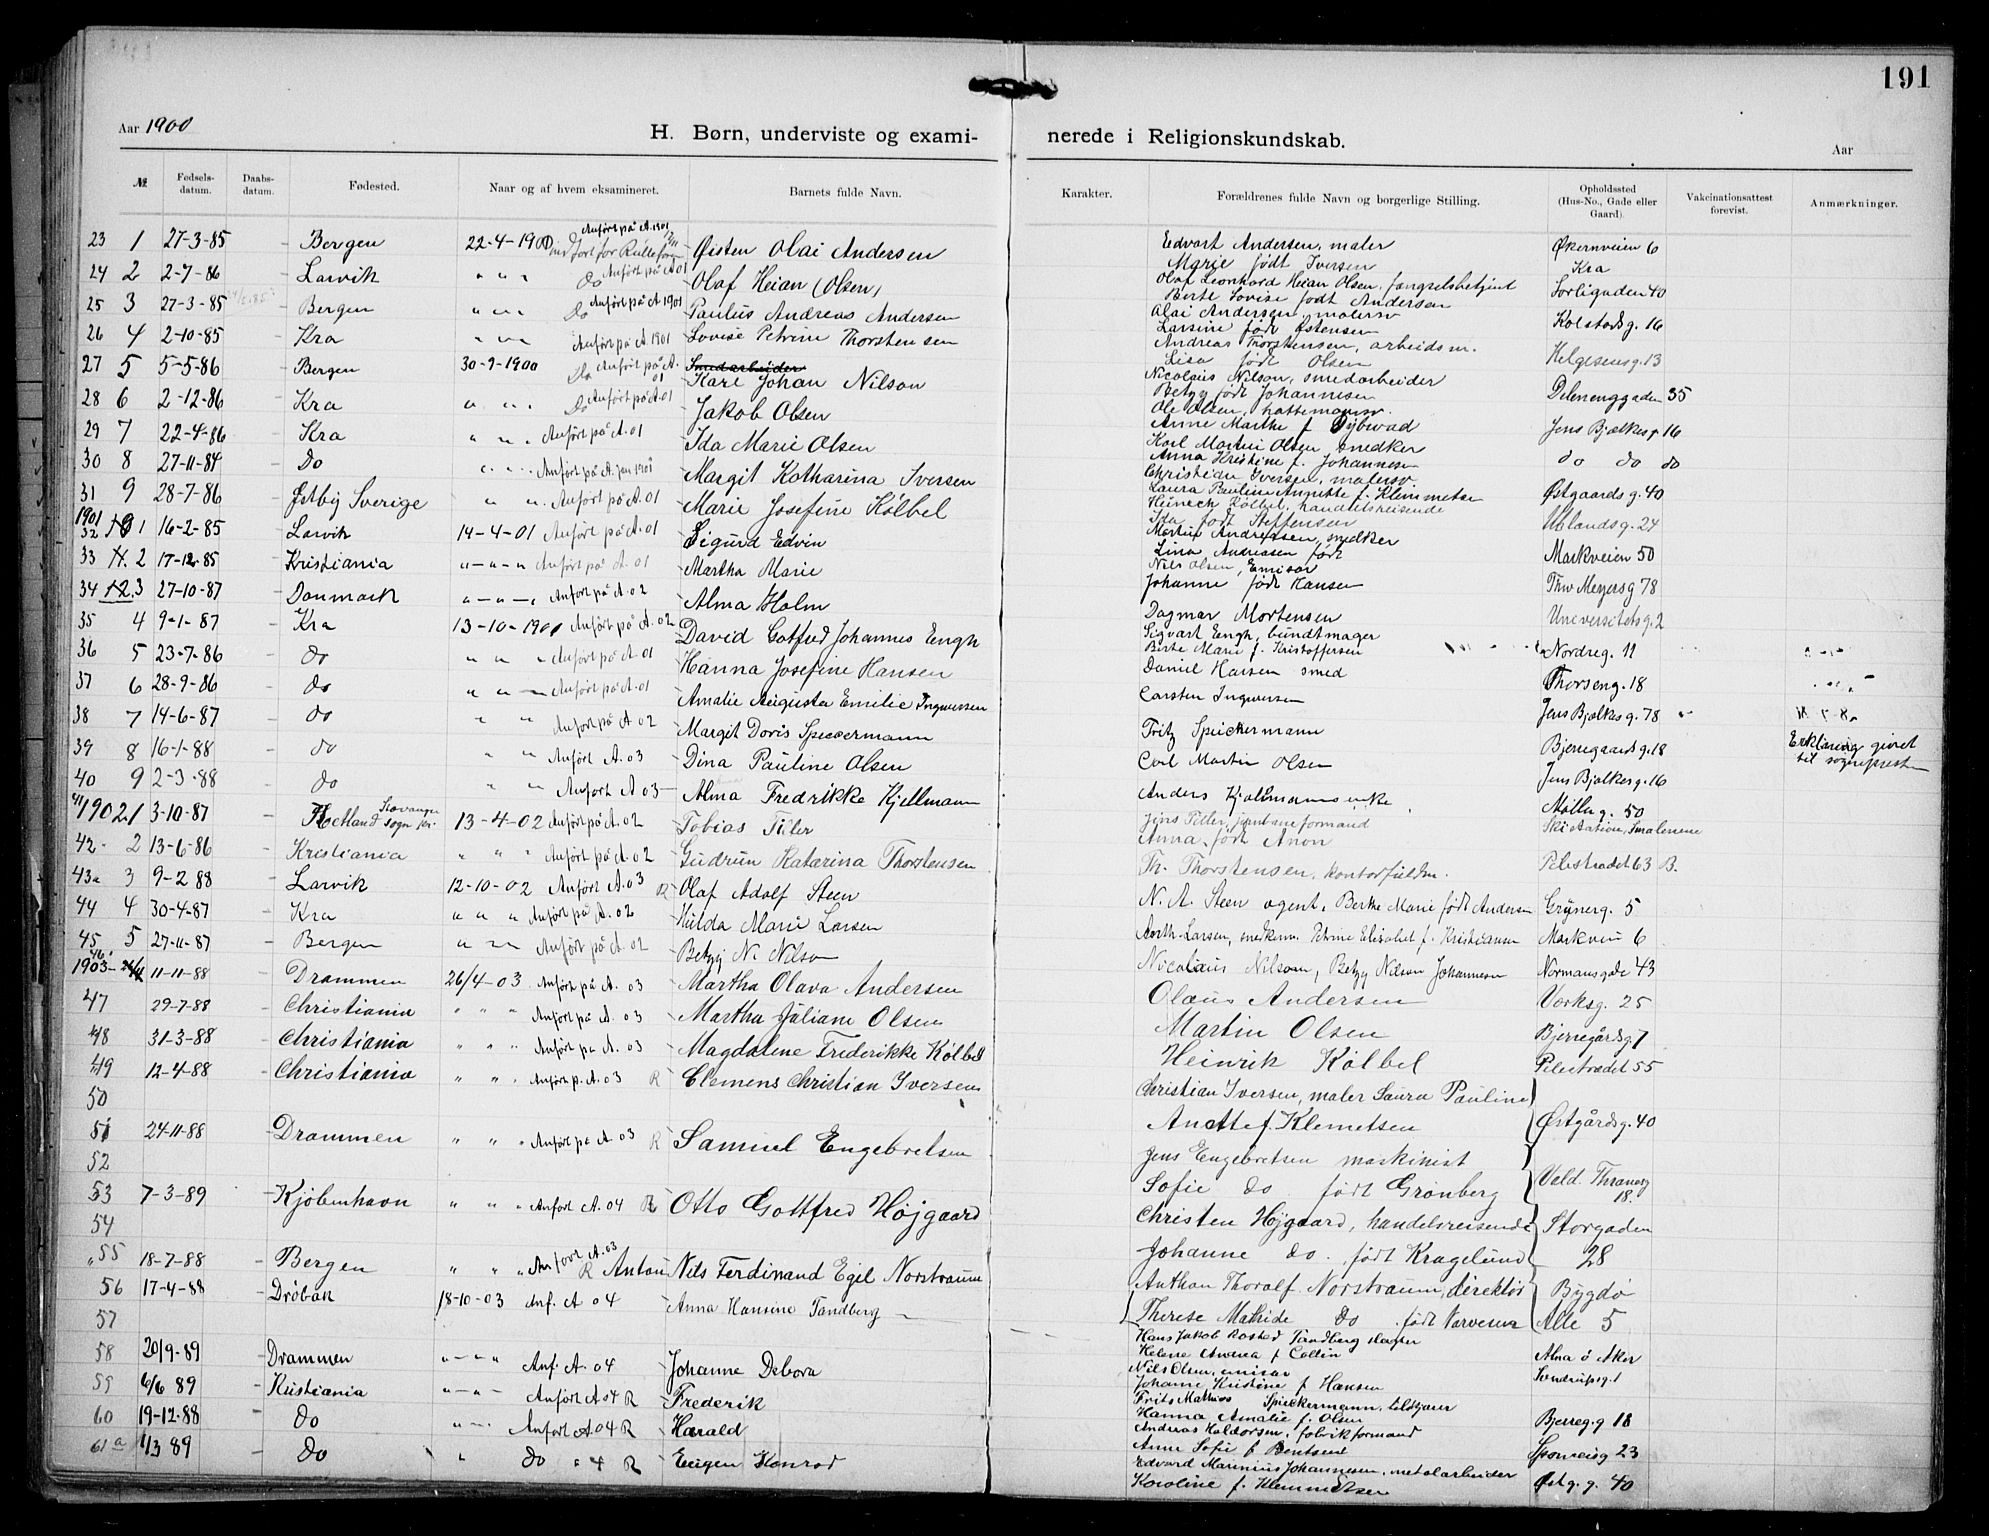 191
Aar 1900
H. Børn, underviste og exami-
nerede i Religionskundskab.
Aar
№ Fødsels-datum. Daabs-datum. Fødested. Naar og af hvem eksamineret. Barnets fulde Navn. Karakter. Forældrenes fulde Navn og borgerlige Stilling. Opholdssted (Hus-No., Gade eller Gaard). Vakcinationsattest forevist. Anmærkninger.
23 1 27-3-85 Bergen 22-4-1900 Anført på A. 1901 Øisten Olai Andersen Edvart Andersen, maler Økernveien 6
Marie født Iversen Kra
24 2 2-7-86 Larvik " " " Do Anført på A 01 Olaf Heian (Olsen) Olaf Leonhard Heian Olsen, fængselsbetjent Sorligaden 40
Berte Lovise født Andersen
25 3 27-3-85 Bergen " " " Do Anført på A 1901 Paulus Andreas Andersen Olai Andersen, malersv Kolstadsg. 16
Larsine født Østensen
26 4 2-10-85 Kra " " " Anført på A 1901 Lovise Petrine Thorstensen Andreas Thorstensen, arbeidsm. Helgesensg. 13
Lisa født Olsen
27 5 5-5-86 Bergen 30-9-1900 Do Anført på A. 01 Smedarbeider Karl Johan Nilson Nicolaus Nilson, smedarbeider Delenenggaden 35
Betzy født Johannesen
28 6 2-12-86 Kra " " " Do Anført på A. 01 Jakob Olsen Ole Olsen, hattemagersv. Jens Bjelkesg 16
Anne Marthe f Dybvad
29 7 22-4-86 Kra " " " Anført på A. 01 Ida Marie Olsen Karl Martin Olsen snedker do do do
Anna Kristine f. Johannesen
30 8 27-11-84 Do " " " Anført på A. 1901 Margit Katharina Iversen Christian Iversen, malersv. Østgaards g. 40
Laura Pauline Annette f. Klemmetsen
31 9 28-7-86 Østby Sverige " " Anført på A. 01 Marie Josefine Kølbel Heinrich Kølbel, handelsreisende Uelandsg. 24
Ida født Steffensen
1901
32 1 16-2-85 Larvik 14-4-01 Anført på A. 01 Sigurd Edvin Martin Andreassen, snedker Markveien 50
Lina Andreasen født
33 2 17-12-85 Kristiania " " " Anført på A. 01 Martha Marie Nils Olsen, Emisær Thv Meyersg 78
Johanne født Hansen
34 3 27-10-87 Danmark " " " Anført på A. 02 Alma Holm Dagmar Mortensen Universitetsg. 2
35 4 9-1-87 Kra 13-10-1901 Anført på A. 02 David Gotfred Johannes Engh Sigvart Engh, bundtmager Nordreg. 11
Birte Marie f. Kristoffersen
36 5 23-7-86 do " " " Anført på A. 01 Hanna Josefine Hansen Daniel Hansen smed Thorseng. 18
37 6 28-9-86 do " " " Anført på A. 01 Amalie Augusta Emilie Ingwersen Carsten Ingwersen Jens Bjelkesg. 78
38 7 14-6-87 do " " Anført på A. 02 Margit Doris Spieckermann Fritz Spieckermann Bjerregaardsg. 18 Erklæring givet til sognepresten
39 8 16-1-88 do " " Anført A. 03 Dina Pauline Olsen Carl Martin Olsen Jens Bjelkesg. 16
40 9 2-3-88 do " " Anført A 03 Alma Fredrikke Kjellmann Anders Kjellmanns enke Møllerg. 50
41 1902 1 3-10-87 Hetland sogn Stavanger 13-4-02 Anført på A. 02 Tobias Tiller Jens Tiller, jernbaneformand Ski station, Smaalenene
Anna født Anon
42 2 13-6-86 Kristiania " " " Anført på A. 02 Gudrun Katarina Thorstensen Th. Thorstensen, kontorfuldm. Pilestrædet 63 B.
43 3 9-2 88 Larvik 12-10-02 Anført A. 03 R Olaf Adolf Steen N. A. Steen agent. Berthe Marie født Andersen Grünerg. 5
44 4 30-4-87 Kra " " " Anført på A. 02 Hulda Marie Larsen Larsen, snedkerm. Petrine Elisabet f. Kristiansen Markvei 6
45 5 27-11-87 Bergen " " " Anført på A. 02 Betzy N. Nilson Nicolaus Nilson, Betzy Nilson Johannesen Normansgade 43
46 1903 11-11-88 Drammen 26/4-03 Anført på A. 03 Martha Olava Andersen Olaus Andersen Verksg. 25
47 29-7-88 Christiania " " " Anført på A. 03 Martha Juliane Olsen Martin Olsen Bjerregårdsg 7
48 31-3-88 Christiania " " " Anført på A. 03 Magdalene Frederikke Kølbel Heinrik Kølbel Pilestrædet 55
49 12-4-88 Christiania " " " Anført p. A. 03 R Clemens Christian Iversen Christian Iversen, maler Laura Pauline
50 Anette f. Klemetsen Østgårdsg. 40
51 24-11-88 Drammen " " " Anført på A. 03 R Samuel Engebretsen Jens Engebretsen maskinist
52 Sofie do født Grønberg Vald. Thranesg 18.
53 7-3-89 Kjøbenhavn " " " Anført A. 04 R Otto Gottfred Højgaard Christen Højgaard, handelsreisende Storgaden
54 Johanne do. født Kragelund 28
55 18-7-88 Bergen " " " Anført A. 03 R Anton Nils Ferdinand Egil Norstraum Anthon Thoralf Norstraum, direktør Bygdø
56 17-4-88 Drøbak 18-10-03 Anf. A 04 Anna Hansine Tandberg Therese Mathide Do født Narvesen Alle 5
57 Hans Jakob Rosted Tandberg slagter
Helene Andrea f Collin Alna ö Aker
58 20/9-89 Drammen " " " Anf. A. 04 Johanne Debora Nils Olsen, emisær Sendrupsg. 1
Johanne Kristine f Hansen
59 6/6 89 Kristiania " " Anført A 04 R Frederik Frits Mathias Spieckermann, bildskjærer
Hanna Amalie f. Olsen Bjerreg.g 18
60 19-12-88 do " " Anført A. 04 R Harald Andreas Haldorsen, fabrikformand
Anne Sofie f Bentsen Sporveisg 23
61a 1/3 89 do " do " 4 R Eugen Konrad Edvard Marinius Johannesen, metalarbeider
Karoline f. Klemmetsen Østg.g. 40